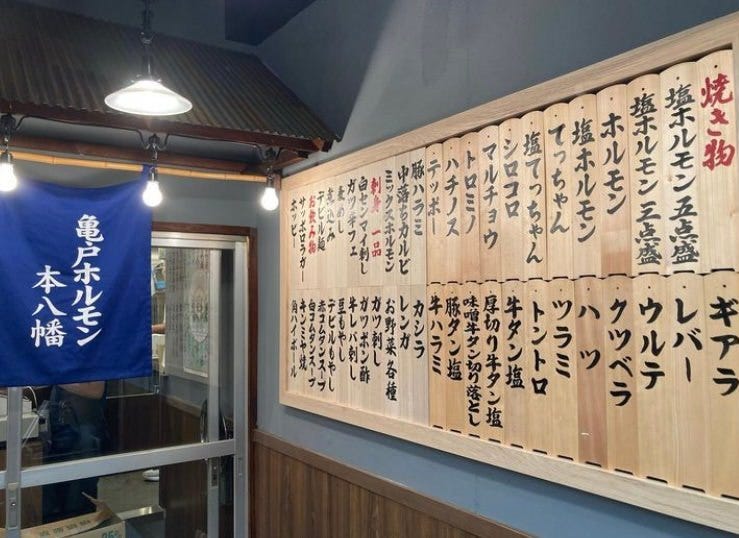 亀戸ホルモン
本八幡
焼き物
塩ホルモン五点盛
塩ホルモン三点盛
ホルモン
塩ホルモン
てっちゃん
塩てっちゃん
シロコロ
マルチョウ
トロミノ
ハチノス
テッポー
豚ハラミ
中落ちカルビ
ミックスホルモン
刺身 一品
白センマイ刺し
麦めし
煮込み
デビル麺
お飲み物
サッポロラガー
ホッピー
ギアラ
レバー
ウルテ
クツベラ
ハツ
ツラミ
トントロ
牛タン塩
厚切り牛タン塩
味噌牛タン切り落とし
豚タン塩
牛ハラミ
カシラ
レンガ
お野菜各種
ガツ刺し
ガツポン酢
牛レバ刺し
豆もやし
デビルもやし
赤コムタンスープ
白コムタンスープ
キンミヤ焼
角ハイボール